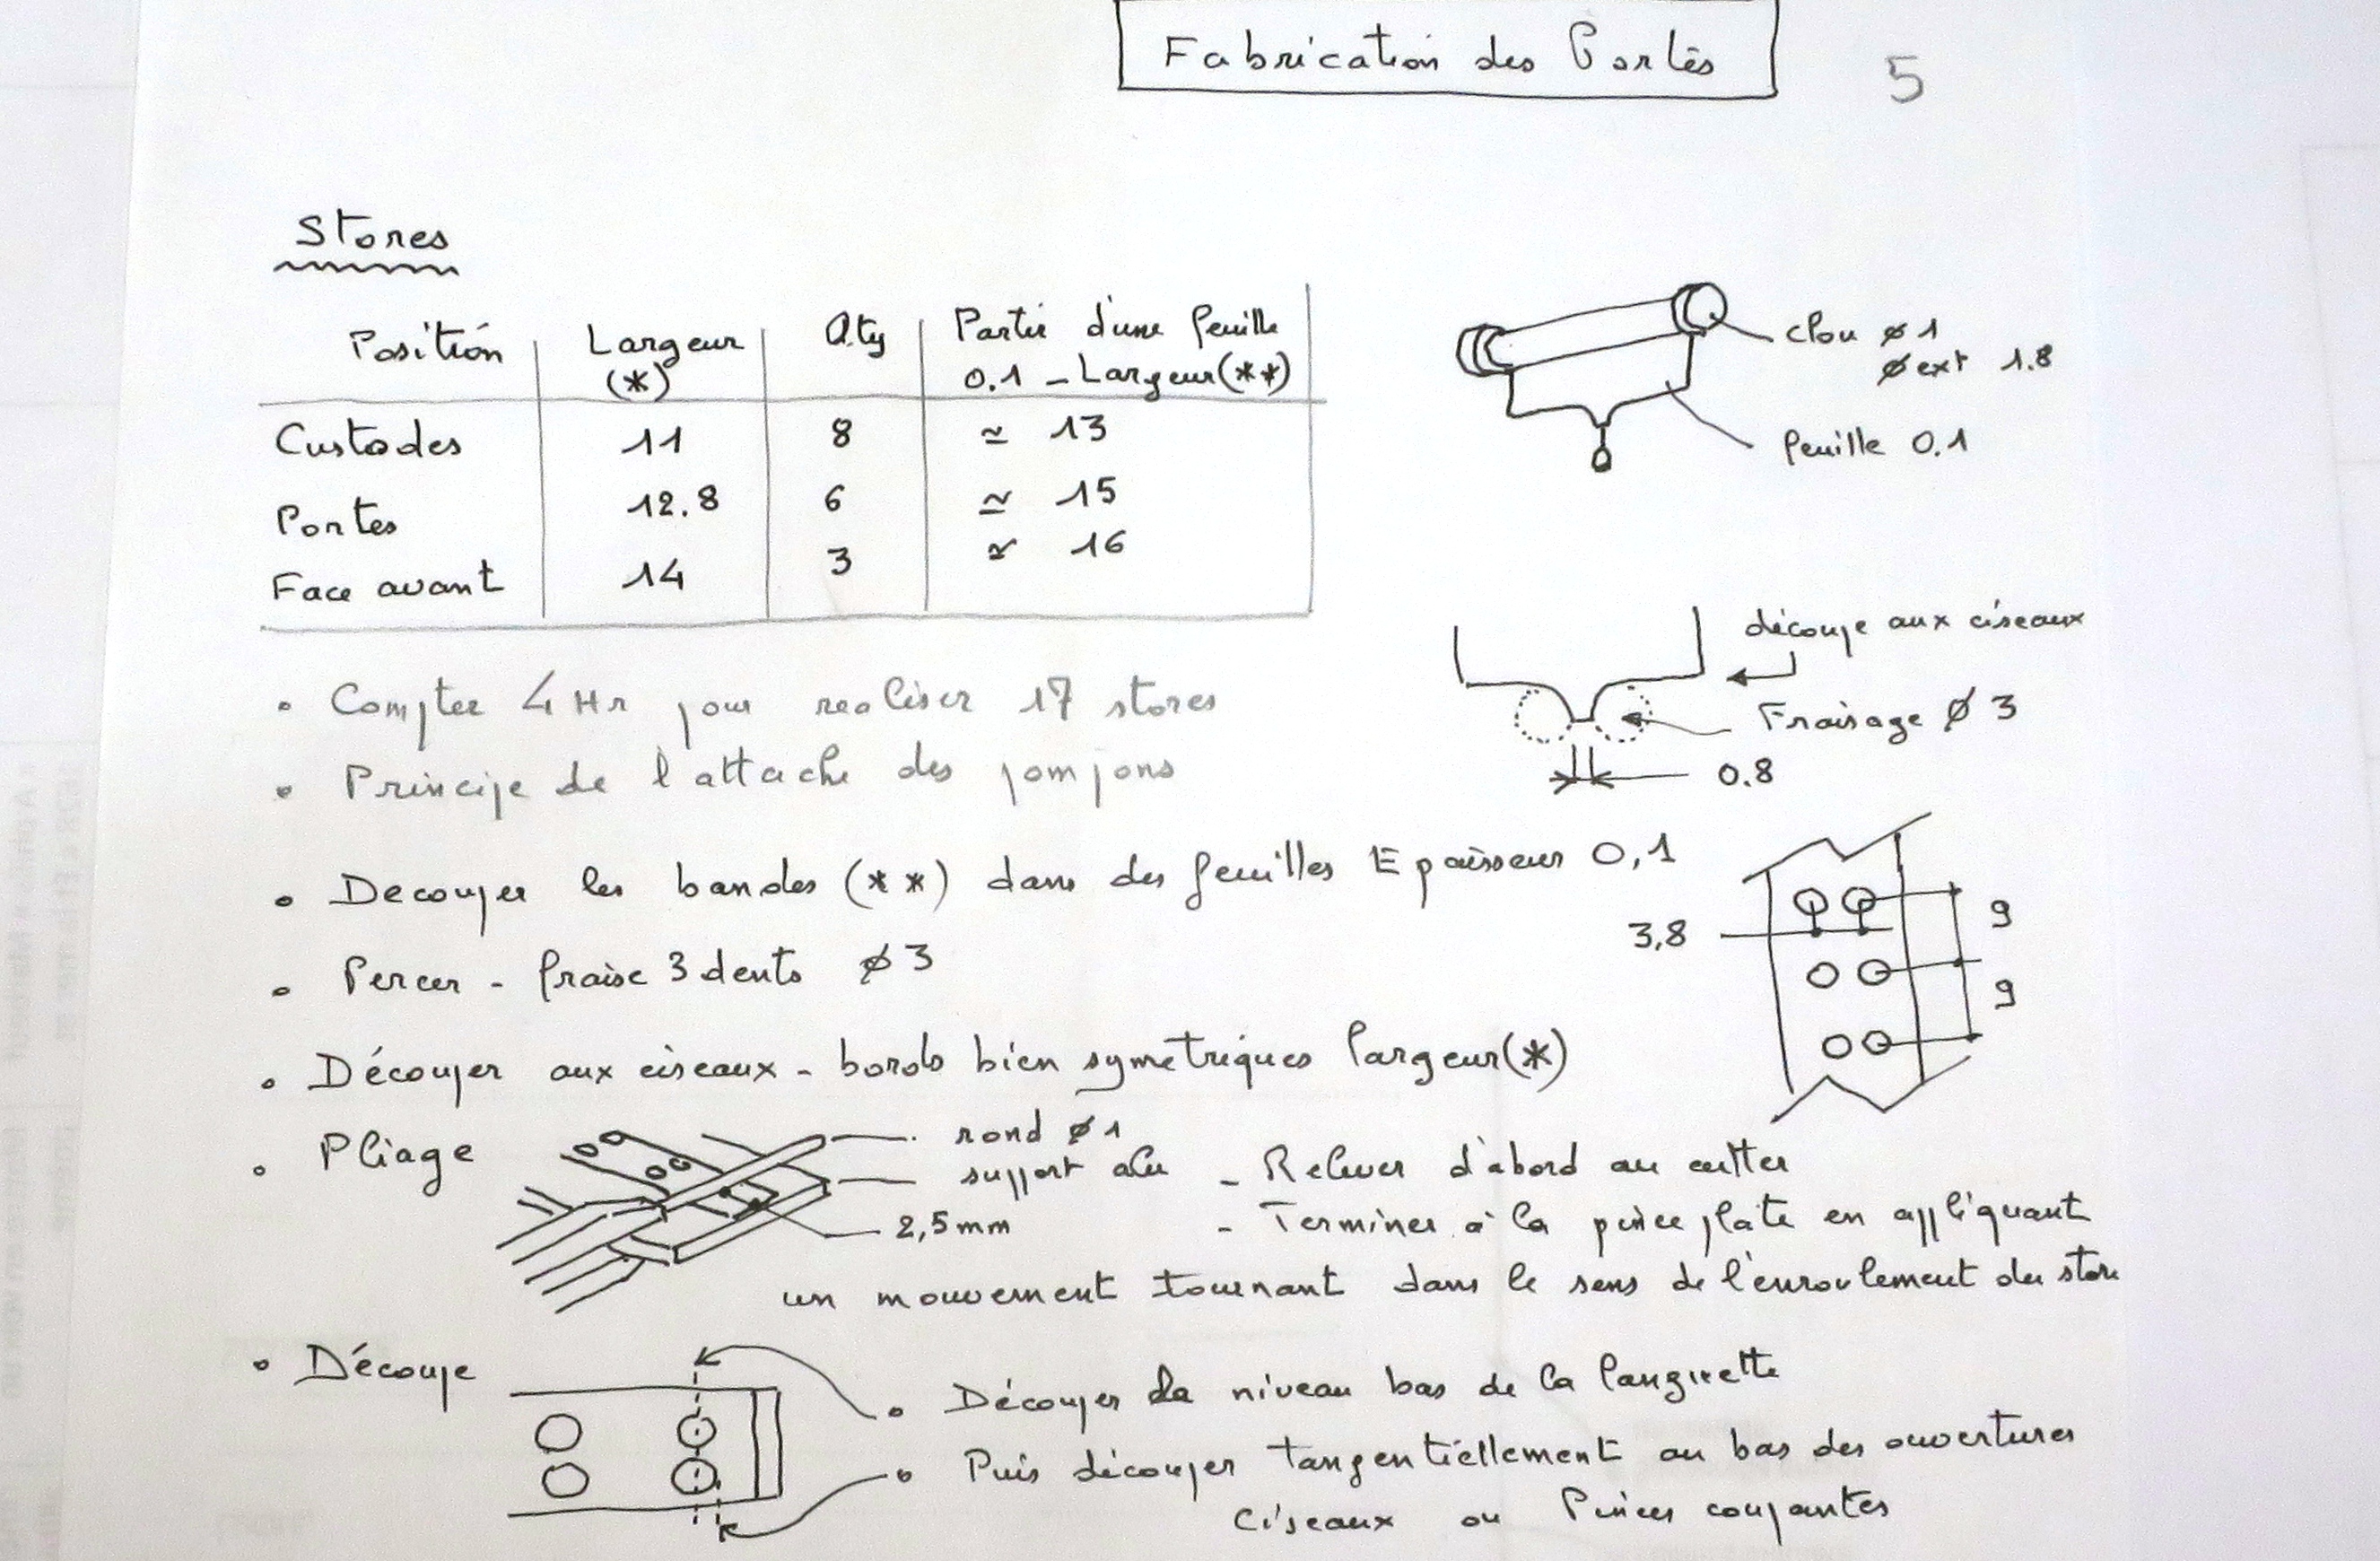 Fabrication des Portes
5
Stores
Position Largeur (*) Qty Partir d'une feuille 0.1 - Largeur (**)
Custodes 11 8 ≃ 13
Portes 12.8 6 ≃ 15
Face avant 14 3 ≃ 16
clou ø 1
ø ext 1.8
feuille 0.1
découpe aux ciseaux
Fraisage ø 3
0.8
• Compter 4 Hr pour realiser 17 stores
• Principe de l'attache des pompons
• Decouper les bandes (**) dans des feuilles Epaisseur 0,1
• Percer - fraise 3 dents ø 3
3,8
9
9
• Découper aux ciseaux - bords bien symetriques largeur (*)
• Pliage
rond ø 1
support alu
2,5 mm
- Relever d'abord au cutter
- Terminer à la pince plate en appliquant
un mouvement tournant dans le sens de l'enroulement du store
• Découpe
• Découper le niveau bas de la languette
• Puis découper tangentiellement au bas des ouvertures
Ciseaux ou Pinces coupantes